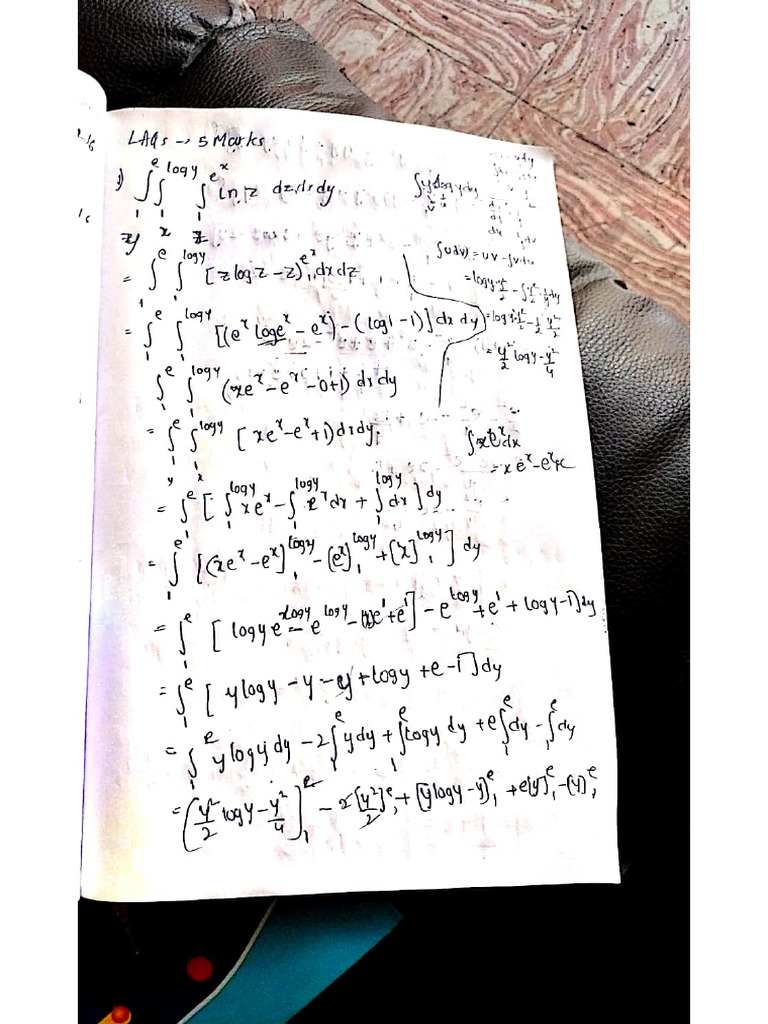 LAQs → 5 Marks
1) ∫₁^e ∫₁^logy ∫₁^e^x ln z dz dx dy
y x z
= ∫₁^e ∫₁^logy [z log z - z]₁^e^x dx dz
= ∫₁^e ∫₁^logy [(e^x log e^x - e^x) - (log 1 - 1)] dx dy
∫₁^e ∫₁^logy (xe^x - e^x - 0 + 1) dx dy
= ∫₁^e ∫₁^logy [xe^x - e^x + 1) dx dy
y x
= ∫₁^e [∫₁^logy xe^x - ∫₁^logy e^x dx + ∫₁^logy dx] dy
= ∫₁^e [(xe^x - e^x]₁^logy - (e^x)₁^logy + [x]₁^logy] dy
= ∫₁^e [log y e^logy - e^logy - e^1 + e^1] - e^logy + e^1 + log y - 1] dy
= ∫₁^e [y log y - y - y + log y + e - 1] dy
= ∫₁^e y log y dy - 2∫₁^e y dy + ∫₁^e log y dy + e∫₁^e dy - ∫₁^e dy
= (y²/2 log y - y²/4]₁^e - 2[y²/2]₁^e + [y log y - y]₁^e + e[y]₁^e - (y)₁^e
∫y log y dy
∫u dv = uv - ∫v du
= log y · y²/2 - ∫y²/2 · 1/y dy
= log y · y²/2 - 1/2 y²/2
= y²/2 log y - y²/4
∫xe^x dx
= xe^x - e^x + c